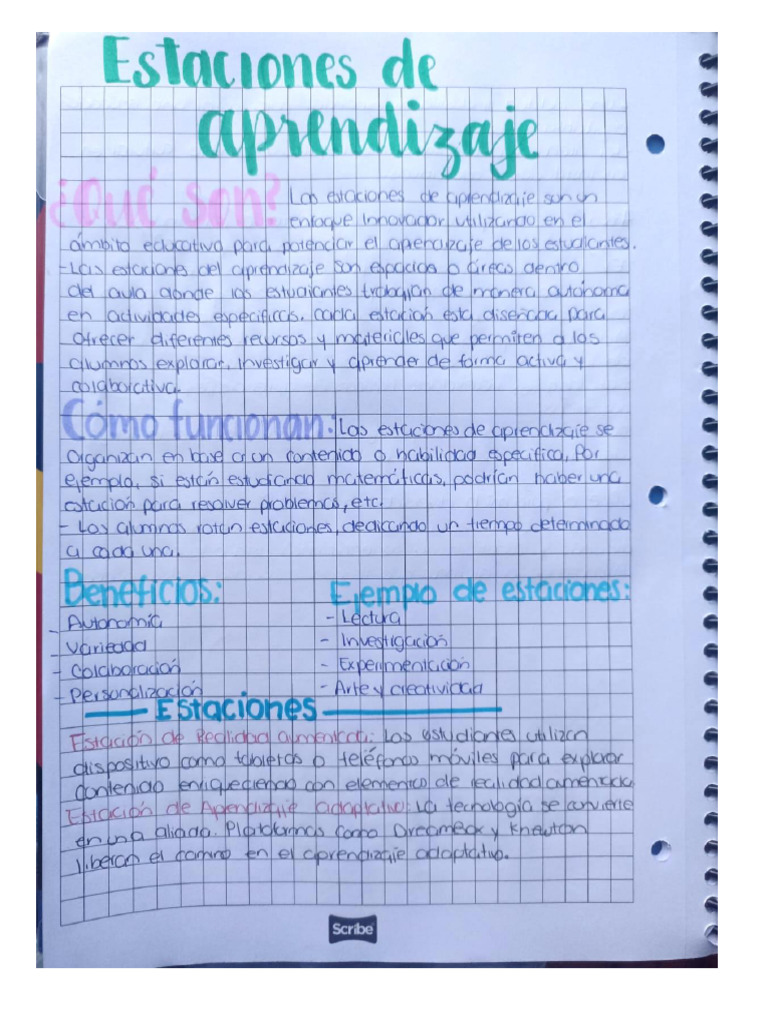 Estaciones de
aprendizaje
¿Qué son? Las estaciones de aprendizaje son un
enfoque innovador utilizando en el
ámbito educativo para potenciar el aprendizaje de los estudiantes.
- Las estaciones del aprendizaje son espacios o áreas dentro
del aula donde los estudiantes trabajan de manera autónoma
en actividades especificas. cada estación está diseñada para
ofrecer diferentes recursos y materiales que permiten a los
alumnos explorar, investigar y aprender de forma activa y
colaborativa.
Cómo funcionan: Las estaciones de aprendizaje se
organizan en base a un contenido o habilidad especifica, Por
ejemplo, si están estudiando matemáticas, podrían haber una
estación para resolver problemas, etc.
- Los alumnos rotan estaciones, dedicando un tiempo determinado
a cada una.
Beneficios:
- Autonomía
- Variedad
- Colaboración
- Personalización
Ejemplo de estaciones:
- Lectura
- Investigación
- Experimentación
- Arte y creatividad
Estaciones
Estación de Realidad aumentada: Los estudiantes utilizan
dispositivo como tabletas o teléfonos móviles para explorar
contenido enriqueciendo con elementos de realidad aumentada
Estación de Aprendizaje adaptativo: La tecnología se convierte
en una aliada. Plataformas como y Knewton
liberan el camino en el aprendizaje adaptativo.
Scribe